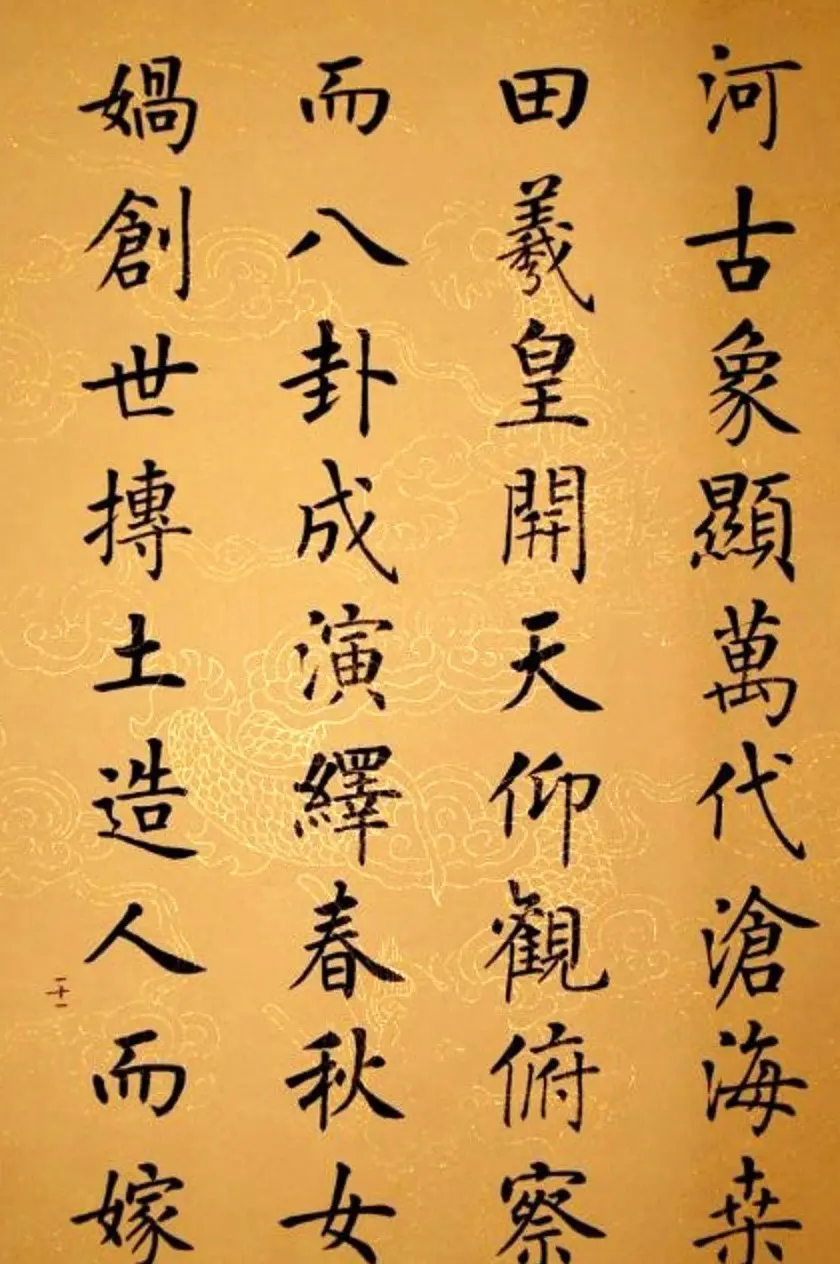 河古象顯萬代滄海桒
田羲皇開天仰觀俯察
而八卦成演繹春秋女
媧創世摶土造人而嫁
二十一